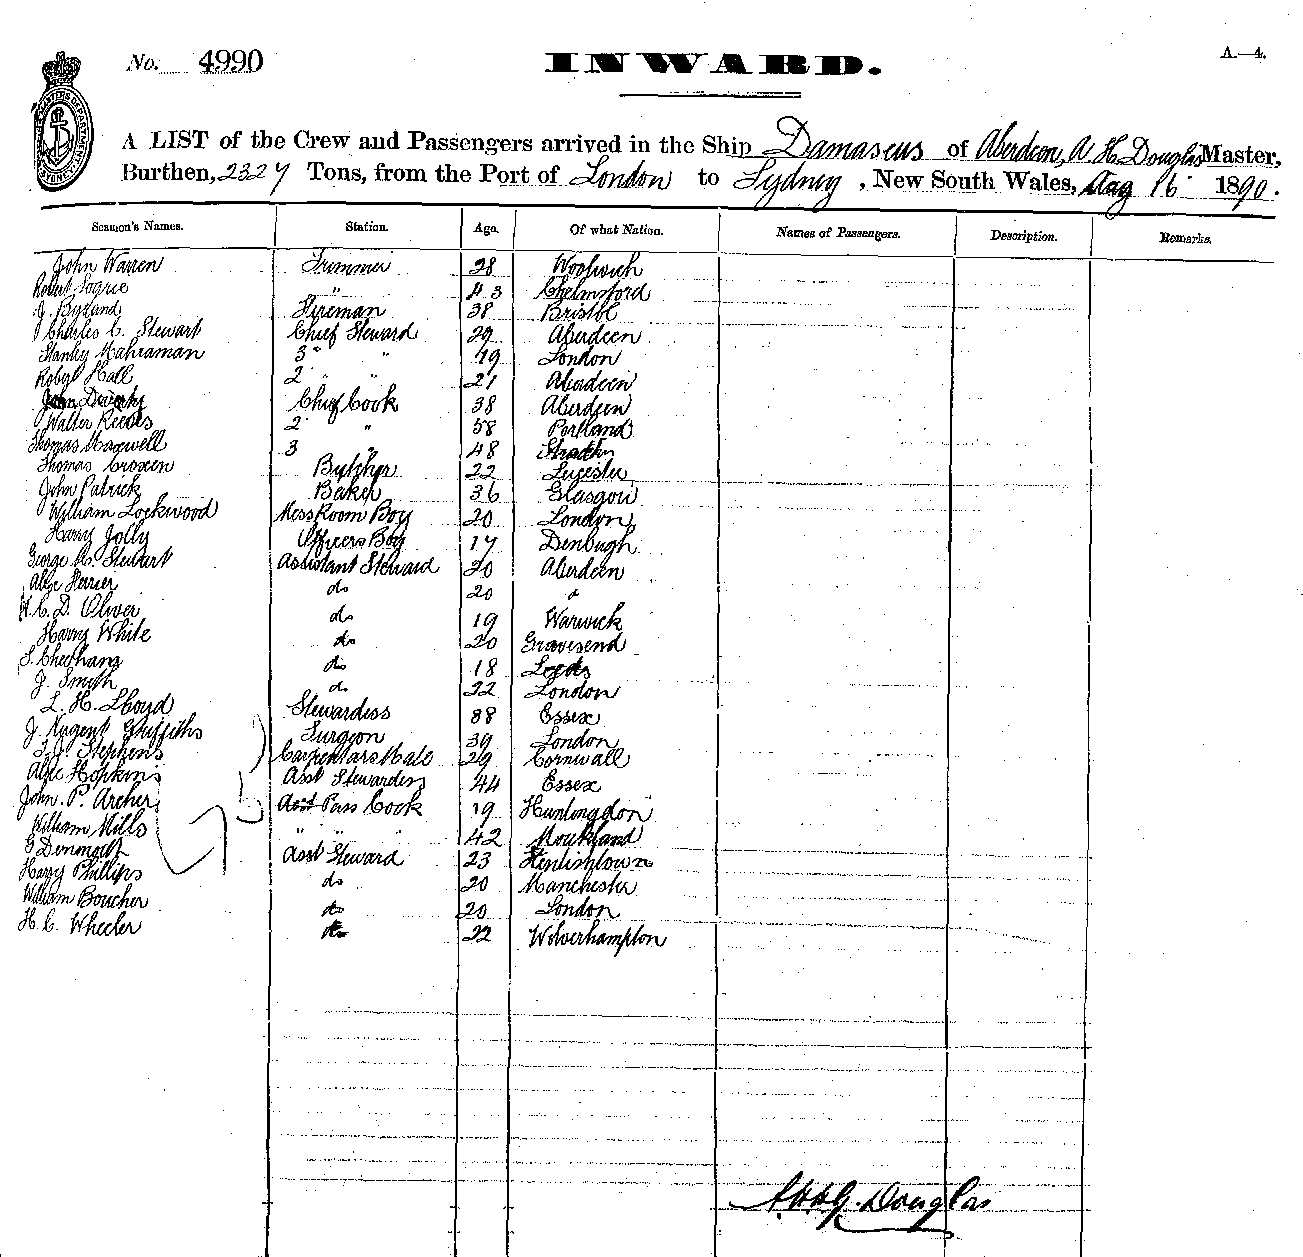 No. 4990 INWARD. A.—4.
A LIST of the Crew and Passengers arrived in the Ship Damascus of Aberdeen, A H. Douglas Master,
Burthen, 2327 Tons, from the Port of London to Sydney, New South Wales, Aug 16 1890.
Seamen's Names. Station. Age. Of what Nation. Names of Passengers. Description. Remarks.
John Warren Trimmer 28 Woolwich
Robert " 43 Chelmsford
J. Byland Fireman 38 Bristol
Charles C. Stewart Chief Steward 29 Aberdeen
Stanley 3 " " 19 London
Robert Hall 2 " " 21 Aberdeen
John Chief Cook 38 Aberdeen
Walter Reeves 2 " 58 Portland
Thomas Maxwell 3 " 48
Thomas Croxen Butcher 22 Leicester
John Patrick Baker 36 Glasgow
William Lockwood Mess Room Boy 20 London
Harry Jolly Officers Boy 17 Denbugh
George Stewart Assistant Steward 20 Aberdeen
do 20
W. C. D. Oliver do 19 Warwick
Harry White do 20 Gravesend
S. Cheetham do 18 Leeds
J. Smith do 22 London
L. H. Lloyd Stewardess 38 Essex
J. Nugent Griffiths Surgeon 39 London
T. J. Stephens Carpenters Mate 29 Cornwall
Alice Hopkins Asst Stewardess 44 Essex
John P. Archer Asst Pass Cook 19 Huntingdon
William Mills " " " 42
G Asst Steward 23 Kentishtown
Harry Phillips do 20 Manchester
William Boucher do 20 London
H. C. Wheeler do 22 Wolverhampton
Douglas